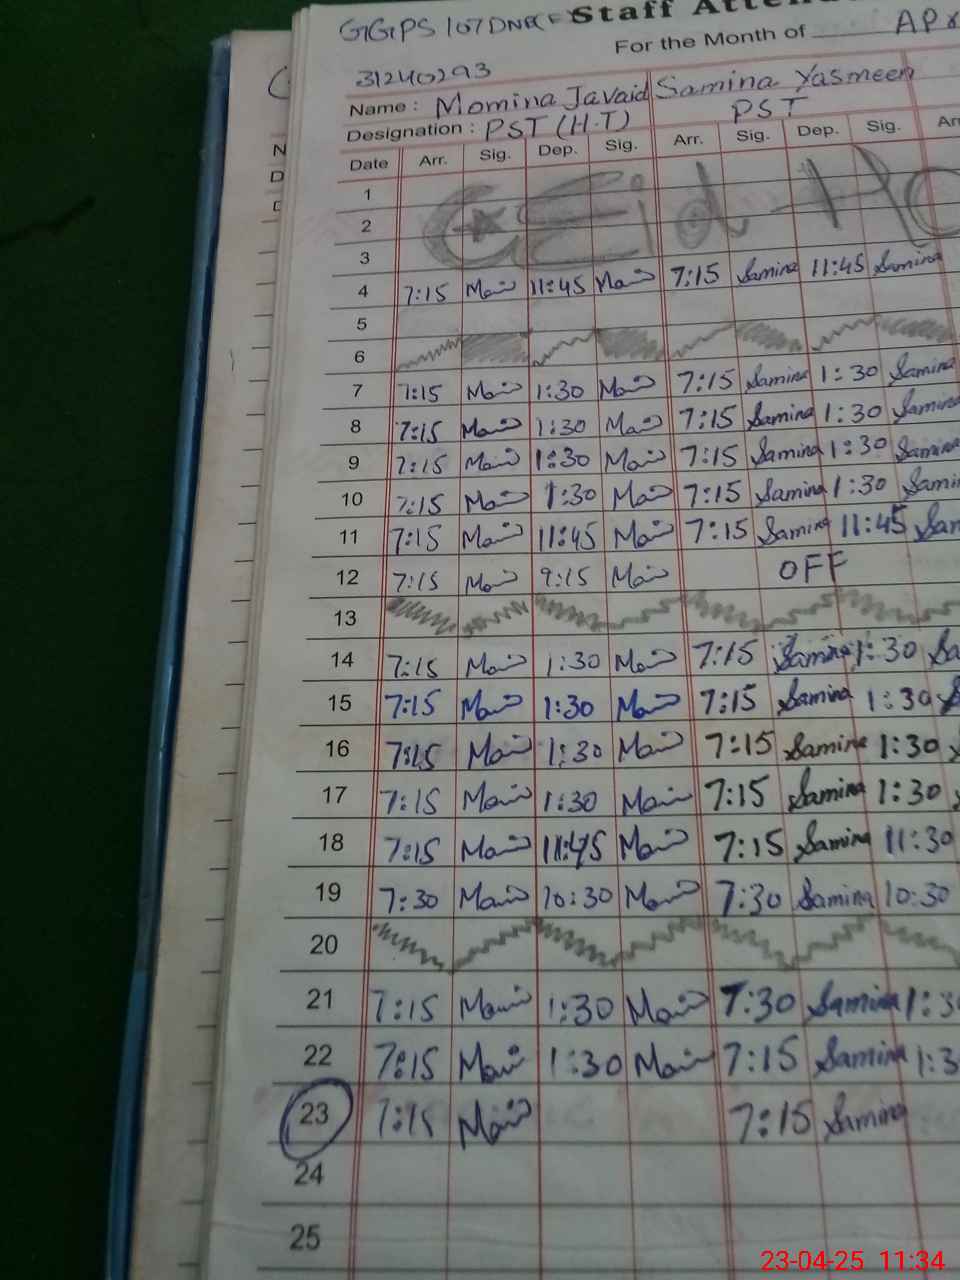 GGPS 107 DNB Staff Atten
For the Month of APr
31240293
Name : Momina Javaid Samina Yasmeen
Designation : PST (H.T) PST
Date Arr. Sig. Dep. Sig. Arr. Sig. Dep. Sig. Arr
1
2 Eid
3
4 7:15 11:45 7:15 Samina 11:45 Samina
5
6
7 7:15 1:30 7:15 Samina 1:30 Samina
8 7:15 1:30 7:15 Samina 1:30 Samina
9 7:15 1:30 7:15 Samina 1:30 Samina
10 7:15 1:30 7:15 Samina 1:30 Sami
11 7:15 11:45 7:15 Samina 11:45 Sam
12 7:15 9:15 OFF
13
14 7:15 1:30 7:15 Samina 1:30 Sa
15 7:15 1:30 7:15 Samina 1:30 S
16 7:15 1:30 7:15 Samina 1:30
17 7:15 1:30 7:15 Samina 1:30
18 7:15 11:45 7:15 Samina 11:30
19 7:30 10:30 7:30 Samina 10:30
20
21 7:15 1:30 7:30 Samina 1:3
22 7:15 1:30 7:15 Samina 1:3
23 7:15 7:15 Samina
24
25
23-04-25 11:34